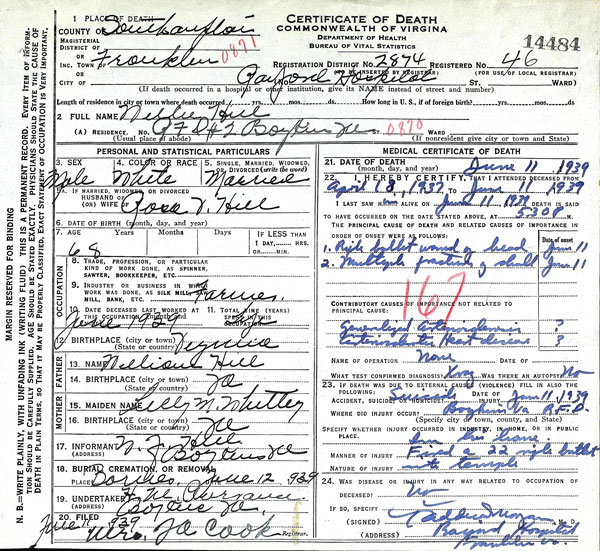 CERTIFICATE OF DEATH
COMMONWEALTH OF VIRGINIA
DEPARTMENT OF HEALTH
BUREAU OF VITAL STATISTICS
14484
1 PLACE OF DEATH
COUNTY OF Southampton
MAGISTERIAL DISTRICT OF
INC. TOWN OF Franklin 0871
REGISTRATION DISTRICT NO. 2874 REGISTERED NO. 46
(TO BE INSERTED BY REGISTRAR) (FOR USE OF LOCAL REGISTRAR)
CITY OF Raiford Hospital ST. WARD)
(IF DEATH OCCURRED IN A HOSPITAL OR OTHER INSTITUTION, GIVE ITS NAME INSTEAD OF STREET AND NUMBER)
Length of residence in city or town where death occurred yrs. mos. ds. How long in U. S., if of foreign birth? yrs. mos. ds.
2 FULL NAME Hill
(A) RESIDENCE. No. RFD #2 Boykins Va. 0870 WARD
(Usual place of abode) (If nonresident give city or town and State)
PERSONAL AND STATISTICAL PARTICULARS
3. SEX Male
4. COLOR OR RACE White
5. SINGLE, MARRIED, WIDOWED, OR DIVORCED (write the word) Married
IF MARRIED, WIDOWED OR DIVORCED
HUSBAND OF
(OR) WIFE OF Rosa V. Hill
6. DATE OF BIRTH (month, day, and year)
7. AGE Years Months Days IF LESS THAN 1 DAY, HRS. OR MIN.
68
OCCUPATION
8. TRADE, PROFESSION, OR PARTICULAR KIND OF WORK DONE, AS SPINNER, SAWYER, BOOKKEEPER, ETC.
9. INDUSTRY OR BUSINESS IN WHICH WORK WAS DONE, AS SILK MILL, SAW MILL, BANK, ETC. Farmer
10. DATE DECEASED LAST WORKED AT THIS OCCUPATION June 1939
11. TOTAL TIME (YEARS) SPENT IN THIS OCCUPATION
12. BIRTHPLACE (city or town) (State or country) Virginia
FATHER
13. NAME William Hill
14. BIRTHPLACE (city or town) (State or country) Va
MOTHER
15. MAIDEN NAME Lilly M. Whitley
16. BIRTHPLACE (city or town) (State or country) Va
17. INFORMANT Hill
(ADDRESS) Boykins Va
18. BURIAL, CREMATION, OR REMOVAL
PLACE DATE June 12, 1939
19. UNDERTAKER
(ADDRESS) Boykins Va.
20. FILED June 11, 1939 Mrs. Cook Registrar.
MEDICAL CERTIFICATE OF DEATH
21. DATE OF DEATH (month, day, and year) June 11 1939
22. I HEREBY CERTIFY, THAT I ATTENDED DECEASED FROM
April 18, 1937 TO June 11 1939
I LAST SAW him ALIVE ON June 11 1939 DEATH IS SAID
TO HAVE OCCURRED ON THE DATE STATED ABOVE, AT 5:30 P M.
THE PRINCIPAL CAUSE OF DEATH AND RELATED CAUSES OF IMPORTANCE IN ORDER OF ONSET WERE AS FOLLOWS: Date of onset
1. Rifle bullet wound of head June 11
2. Multiple fracture of skull June 11
167
CONTRIBUTORY CAUSES OF IMPORTANCE NOT RELATED TO PRINCIPAL CAUSE:
Generalized Arteriosclerosis ?
Arteriosclerotic Heart disease ?
NAME OF OPERATION None DATE OF
WHAT TEST CONFIRMED DIAGNOSIS Xray WAS THERE AN AUTOPSY No
23. IF DEATH WAS DUE TO EXTERNAL CAUSES (VIOLENCE) FILL IN ALSO THE FOLLOWING:
ACCIDENT, SUICIDE, OR HOMICIDE Suicide DATE OF INJURY June 11 1939
WHERE DID INJURY OCCUR? Boykins Va R.F.D.
(Specify city or town, county, and State)
SPECIFY WHETHER INJURY OCCURRED IN INDUSTRY, IN HOME, OR IN PUBLIC PLACE.
In his home.
MANNER OF INJURY Fired a 22 rifle bullet
NATURE OF INJURY into temple
24. WAS DISEASE OR INJURY IN ANY WAY RELATED TO OCCUPATION OF DECEASED? No
IF SO, SPECIFY
(SIGNED) M. D.
(ADDRESS) Raiford Hospital
Franklin Va
MARGIN RESERVED FOR BINDING
N. B.—WRITE PLAINLY, WITH UNFADING INK (WRITING FLUID) THIS IS A PERMANENT RECORD. EVERY ITEM OF INFORMATION SHOULD BE CAREFULLY SUPPLIED. AGE SHOULD BE STATED EXACTLY. PHYSICIANS SHOULD STATE THE CAUSE OF DEATH IN PLAIN TERMS, SO THAT IT MAY BE PROPERLY CLASSIFIED. EXACT STATEMENT OF OCCUPATION IS VERY IMPORTANT.